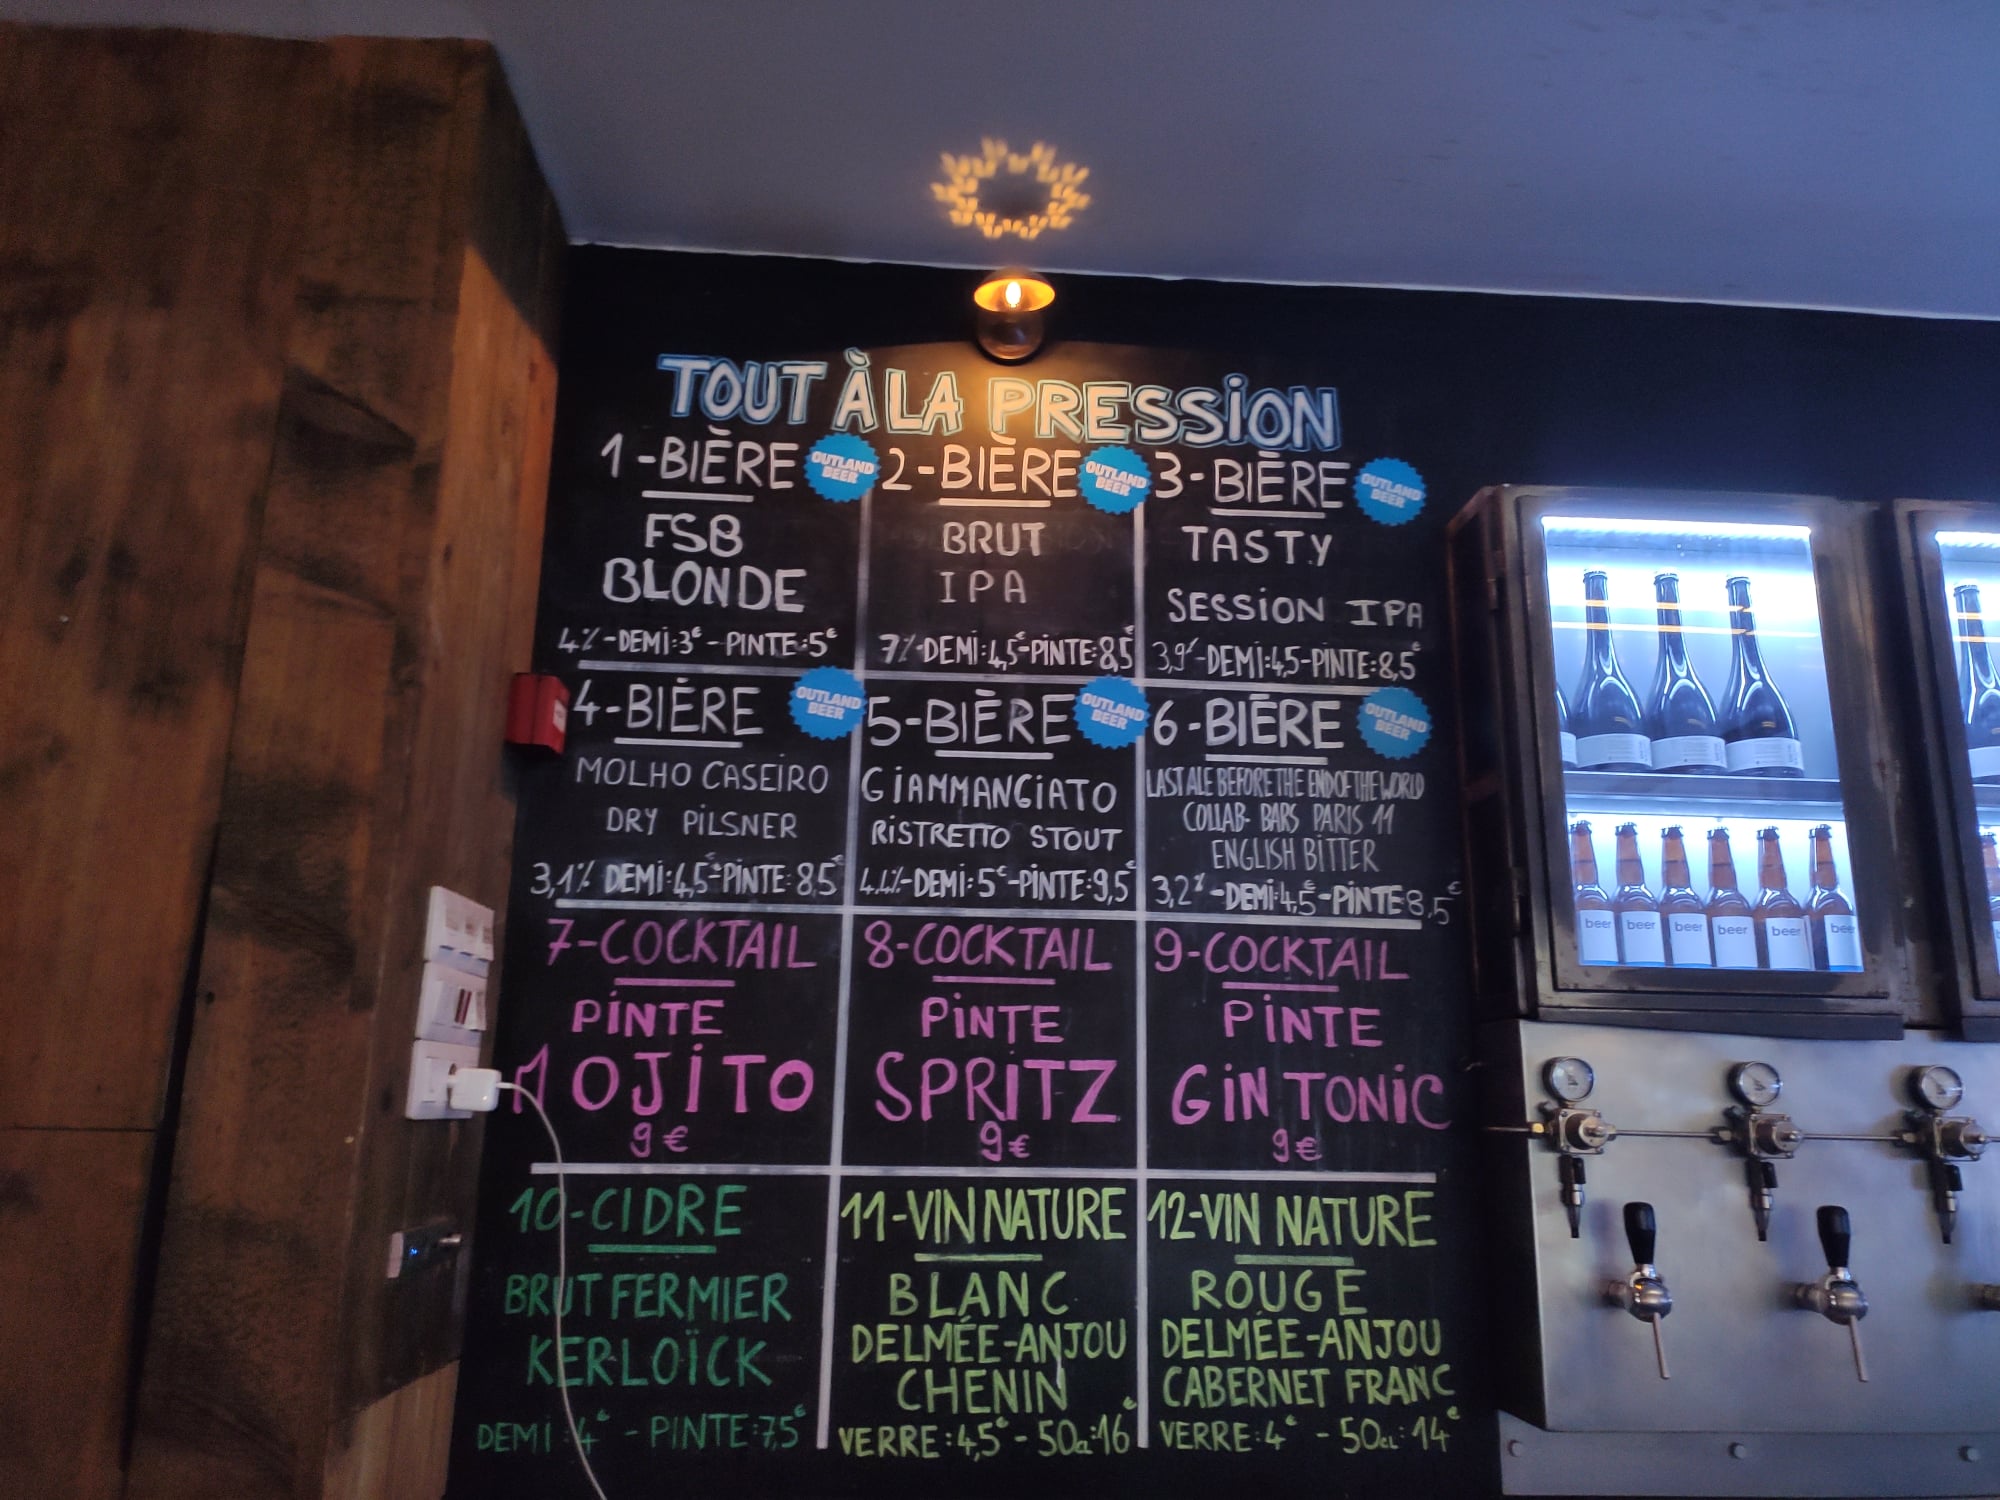 TOUT À LA PRESSION
1-BIÈRE
OUTLAND BEER
FSB
BLONDE
4%-DEMI:3€-PINTE:5€
2-BIÈRE
OUTLAND BEER
BRUT
IPA
7%-DEMI:4,5€-PINTE:8,5€
3-BIÈRE
OUTLAND BEER
TASTY
SESSION IPA
3,9%-DEMI:4,5-PINTE:8,5€
4-BIÈRE
OUTLAND BEER
MOLHO CASEIRO
DRY PILSNER
3,1% DEMI:4,5€-PINTE:8,5€
5-BIÈRE
OUTLAND BEER
GIAMMANGIATO
RISTRETTO STOUT
4,4%-DEMI:5€-PINTE:9,5€
6-BIÈRE
OUTLAND BEER
LAST ALE BEFORE THE END OF THE WORLD
COLLAB- BARS PARIS 11
ENGLISH BITTER
3,2%-DEMI:4,5€-PINTE:8,5€
7-COCKTAIL
PINTE
MOJITO
9€
8-COCKTAIL
PINTE
SPRITZ
9€
9-COCKTAIL
PINTE
GIN TONIC
9€
10-CIDRE
BRUT FERMIER
KERLOÏCK
DEMI:4€-PINTE:7,5€
11-VIN NATURE
BLANC
DELMÉE-ANJOU
CHENIN
VERRE:4,5€-50CL:16€
12-VIN NATURE
ROUGE
DELMÉE-ANJOU
CABERNET FRANC
VERRE:4€-50CL:14€
beer beer beer beer beer beer